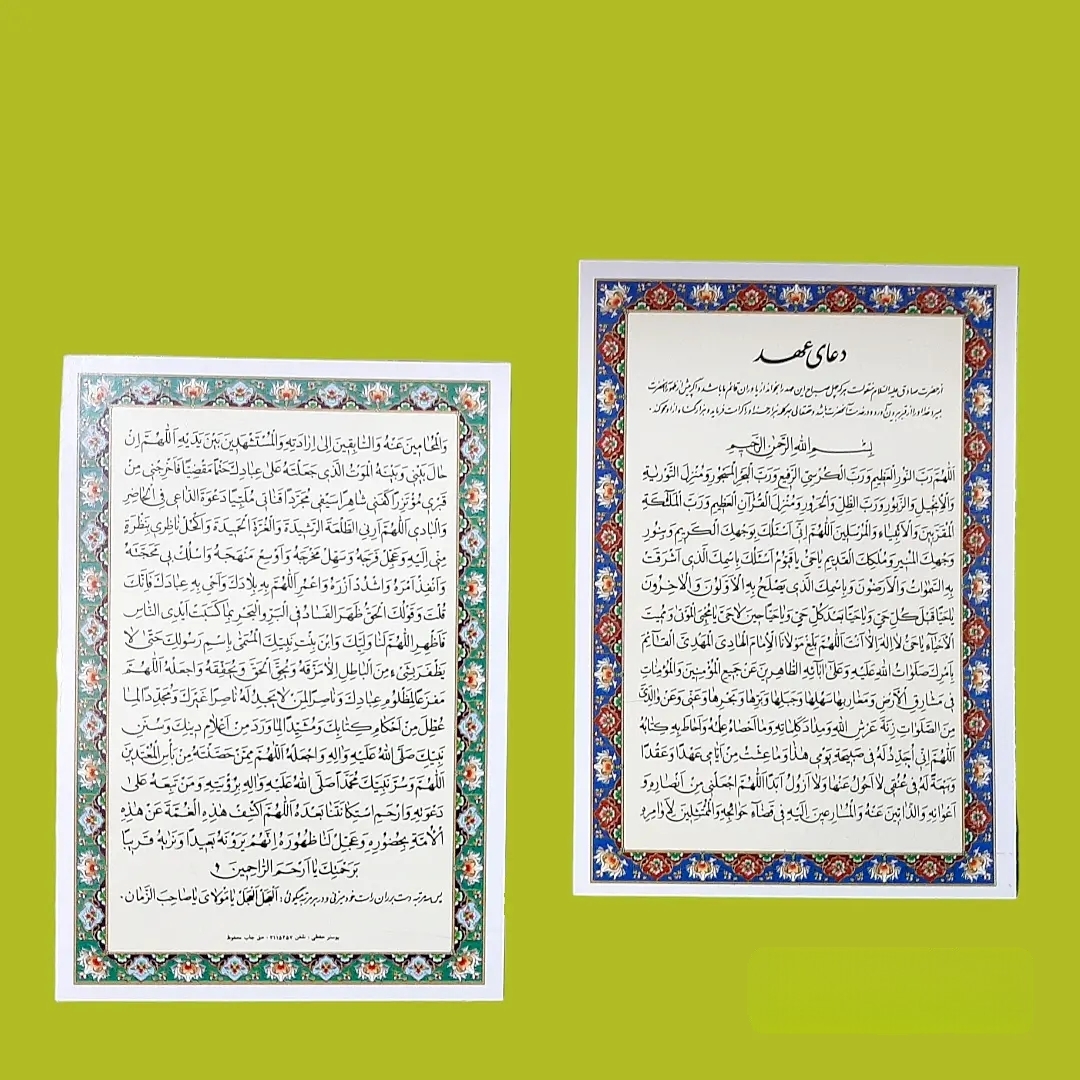 دعای عهد
از حضرت صادق علیه السلام منقولست هرکه چهل صباح این عهد را بخواند از یاوران قائم ما باشد و اگر پیش از ظهور آنحضرت
بمیرد خدا او را از قبر بیرون آورد و در خدمت آنحضرت باشد و حقتعالی بهر کلمه هزار حسنه او را کرامت فرماید و هزار گناه از او محو کند.
بِسْمِ اللهِ الرَّحْمنِ الرَّحیمِ
اَللّهُمَّ رَبَّ النُّورِ الْعَظیمِ وَ رَبَّ الْکُرْسِیِّ الرَّفیعِ وَ رَبَّ الْبَحْرِ الْمَسْجُورِ وَ مُنْزِلَ التَّوْریةِ
وَ الْاِنْجیلِ وَ الزَّبُورِ وَ رَبَّ الظِّلِّ وَ الْحَرُورِ وَ مُنْزِلَ الْقُرْآنِ الْعَظیمِ وَ رَبَّ الْمَلٰئِکَةِ
الْمُقَرَّبینَ وَ الْاَنْبِیاءِ وَ الْمُرْسَلینَ اَللّهُمَّ اِنّی اَسْئَلُکَ بِوَجْهِکَ الْکَریمِ وَ بِنُورِ
وَجْهِکَ الْمُنیرِ وَ مُلْکِکَ الْقَدیمِ یا حَیُّ یا قَیُّومُ اَسْئَلُکَ بِاسْمِکَ الَّذی اَشْرَقَتْ
بِهِ السَّمٰواتُ وَ الْاَرَضُونَ وَ بِاسْمِکَ الَّذی یَصْلَحُ بِهِ الْاَوَّلُونَ وَ الْاٰخِرُونَ
یا حَیًّا قَبْلَ کُلِّ حَیٍّ وَ یا حَیًّا بَعْدَ کُلِّ حَیٍّ وَ یا حَیًّا حینَ لا حَیَّ یا مُحْیِیَ الْمَوْتٰی وَ مُمیتَ
الْاَحْیآءِ یا حَیُّ لا اِلٰهَ اِلّا اَنْتَ اَللّهُمَّ بَلِّغْ مَوْلانَا الْاِمامَ الْهادِیَ الْمَهْدِیَّ الْقآئِمَ
بِاَمْرِکَ صَلَواتُ اللهِ عَلَیْهِ وَ عَلٰی اٰبآئِهِ الطّاهِرینَ عَنْ جَمیعِ الْمُؤْمِنینَ وَ الْمُؤْمِناتِ
فی مَشارِقِ الْاَرْضِ وَ مَغارِبِها سَهْلِها وَ جَبَلِها وَ بَرِّها وَ بَحْرِها وَ عَنّی وَ عَنْ والِدَیَّ
مِنَ الصَّلَواتِ زِنَةَ عَرْشِ اللهِ وَ مِدادَ کَلِماتِهِ وَ ما اَحْصاهُ عِلْمُهُ وَ اَحاطَ بِهِ کِتابُهُ
اَللّهُمَّ اِنّی اُجَدِّدُ لَهُ فی صَبیحَةِ یَوْمی هٰذا وَ ما عِشْتُ مِنْ اَیّامی عَهْدًا وَ عَقْدًا
وَ بَیْعَةً لَهُ فی عُنُقی لا اَحُولُ عَنْها وَ لا اَزُولُ اَبَدًا اَللّهُمَّ اجْعَلْنی مِنْ اَنْصارِهِ وَ
اَعْوانِهِ وَ الذّابّینَ عَنْهُ وَ الْمُسارِعینَ اِلَیْهِ فی قَضآءِ حَوآئِجِهِ وَ الْمُمْتَثِلینَ لِاَوامِرِهِ
وَ الْمُحامینَ عَنْهُ وَ السّابِقینَ اِلٰی اِرادَتِهِ وَ الْمُسْتَشْهَدینَ بَیْنَ یَدَیْهِ اَللّهُمَّ اِنْ
حالَ بَیْنی وَ بَیْنَهُ الْمَوْتُ الَّذی جَعَلْتَهُ عَلٰی عِبادِکَ حَتْمًا مَقْضِیًّا فَاَخْرِجْنی مِنْ
قَبْری مُؤْتَزِرًا کَفَنی شاهِرًا سَیْفی مُجَرِّدًا قَناتی مُلَبِّیًا دَعْوَةَ الدّاعی فِی الْحاضِرِ
وَ الْبادی اَللّهُمَّ اَرِنِی الطَّلْعَةَ الرَّشیدَةَ وَ الْغُرَّةَ الْحَمیدَةَ وَ اکْحُلْ ناظِری بِنَظْرَةٍ
مِنّی اِلَیْهِ وَ عَجِّلْ فَرَجَهُ وَ سَهِّلْ مَخْرَجَهُ وَ اَوْسِعْ مَنْهَجَهُ وَ اسْلُکْ بی مَحَجَّتَهُ
وَ اَنْفِذْ اَمْرَهُ وَ اشْدُدْ اَزْرَهُ وَ اعْمُرِ اللّهُمَّ بِهِ بِلادَکَ وَ اَحْیِ بِهِ عِبادَکَ فَاِنَّکَ
قُلْتَ وَ قَوْلُکَ الْحَقُّ ظَهَرَ الْفَسادُ فِی الْبَرِّ وَ الْبَحْرِ بِما کَسَبَتْ اَیْدِی النّاسِ
فَاَظْهِرِ اللّهُمَّ لَنا وَلِیَّکَ وَ ابْنَ بِنْتِ نَبِیِّکَ الْمُسَمّٰی بِاسْمِ رَسُولِکَ حَتّٰی لا
یَظْفَرَ بِشَیْءٍ مِنَ الْباطِلِ اِلّا مَزَّقَهُ وَ یُحِقَّ الْحَقَّ وَ یُحَقِّقَهُ وَ اجْعَلْهُ اَللّهُمَّ
مَفْزَعًا لِمَظْلُومِ عِبادِکَ وَ ناصِرًا لِمَنْ لا یَجِدُ لَهُ ناصِرًا غَیْرَکَ وَ مُجَدِّدًا لِما
عُطِّلَ مِنْ اَحْکامِ کِتابِکَ وَ مُشَیِّدًا لِما وَرَدَ مِنْ اَعْلامِ دینِکَ وَ سُنَنِ
نَبِیِّکَ صَلَّی اللهُ عَلَیْهِ وَ اٰلِهِ وَ اجْعَلْهُ اَللّهُمَّ مِمَّنْ حَصَّنْتَهُ مِنْ بَاْسِ الْمُعْتَدینَ
اَللّهُمَّ وَ سُرَّ نَبِیَّکَ مُحَمَّدًا صَلَّی اللهُ عَلَیْهِ وَ اٰلِهِ بِرُؤْیَتِهِ وَ مَنْ تَبِعَهُ عَلٰی
دَعْوَتِهِ وَ ارْحَمِ اسْتِکانَتَنا بَعْدَهُ اَللّهُمَّ اکْشِفْ هٰذِهِ الْغُمَّةَ عَنْ هٰذِهِ
الْاُمَّةِ بِحُضُورِهِ وَ عَجِّلْ لَنا ظُهُورَهُ اِنَّهُمْ یَرَوْنَهُ بَعیدًا وَ نَراهُ قَریبًا
بِرَحْمَتِکَ یا اَرْحَمَ الرّاحِمینَ
پس سه مرتبه دست بر ران راست خود میزنی و در هر مرتبه میگوئی: اَلْعَجَلَ اَلْعَجَلَ یا مَوْلایَ یا صاحِبَ الزَّمانِ.
پوستر حفظی : تلفن ۳۱۱۵۲۵۲ : حق چاپ محفوظ